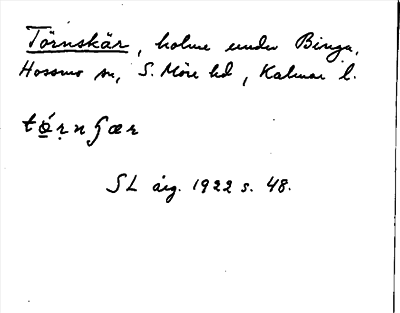 Törnskär, holme under Binga,
Hossmo sn, S. Möre hd, Kalmar l.
tö́ṛnʃær
SL årg. 1922 s. 48.